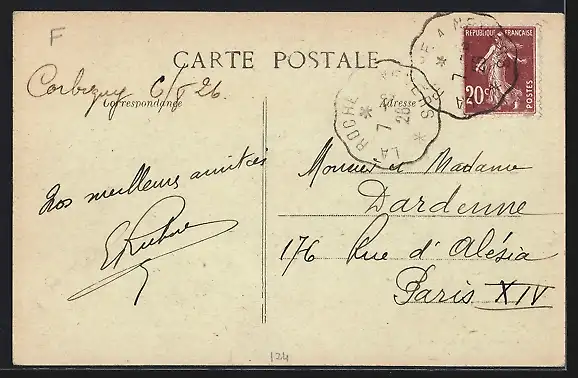 F
CARTE POSTALE
Corbigny 6/8 26.
Correspondance
Adresse
RÉPUBLIQUE FRANÇAISE
20c
POSTES
LA ROCHE
7
26
Nos meilleures amitiés
Monsieur et Madame
Dardenne
176 Rue d'Alésia
Paris XIV
124